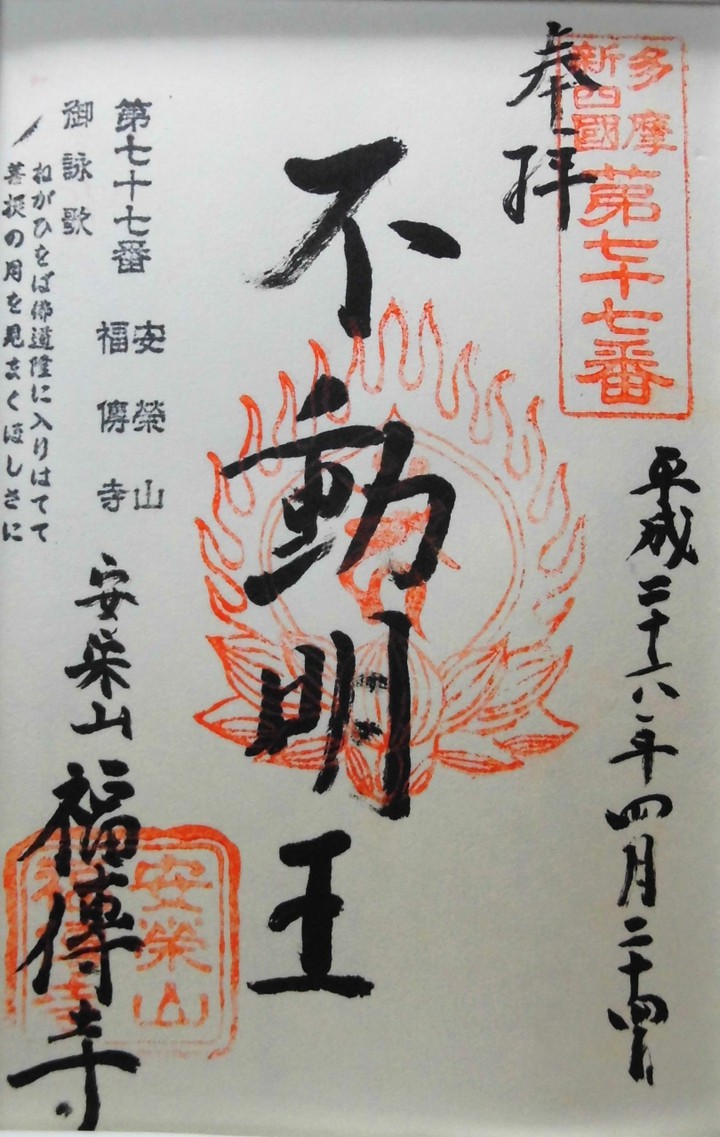 奉拝
多摩
新四國
第七十七番
平成二十六年四月二十四日
不動明王
第七十七番
安榮山
福傳寺
御詠歌
ねがひをば佛道隆に入りはてて
菩提の月を見まくほしさに
安栄山
福傳寺
安榮山
福傳寺